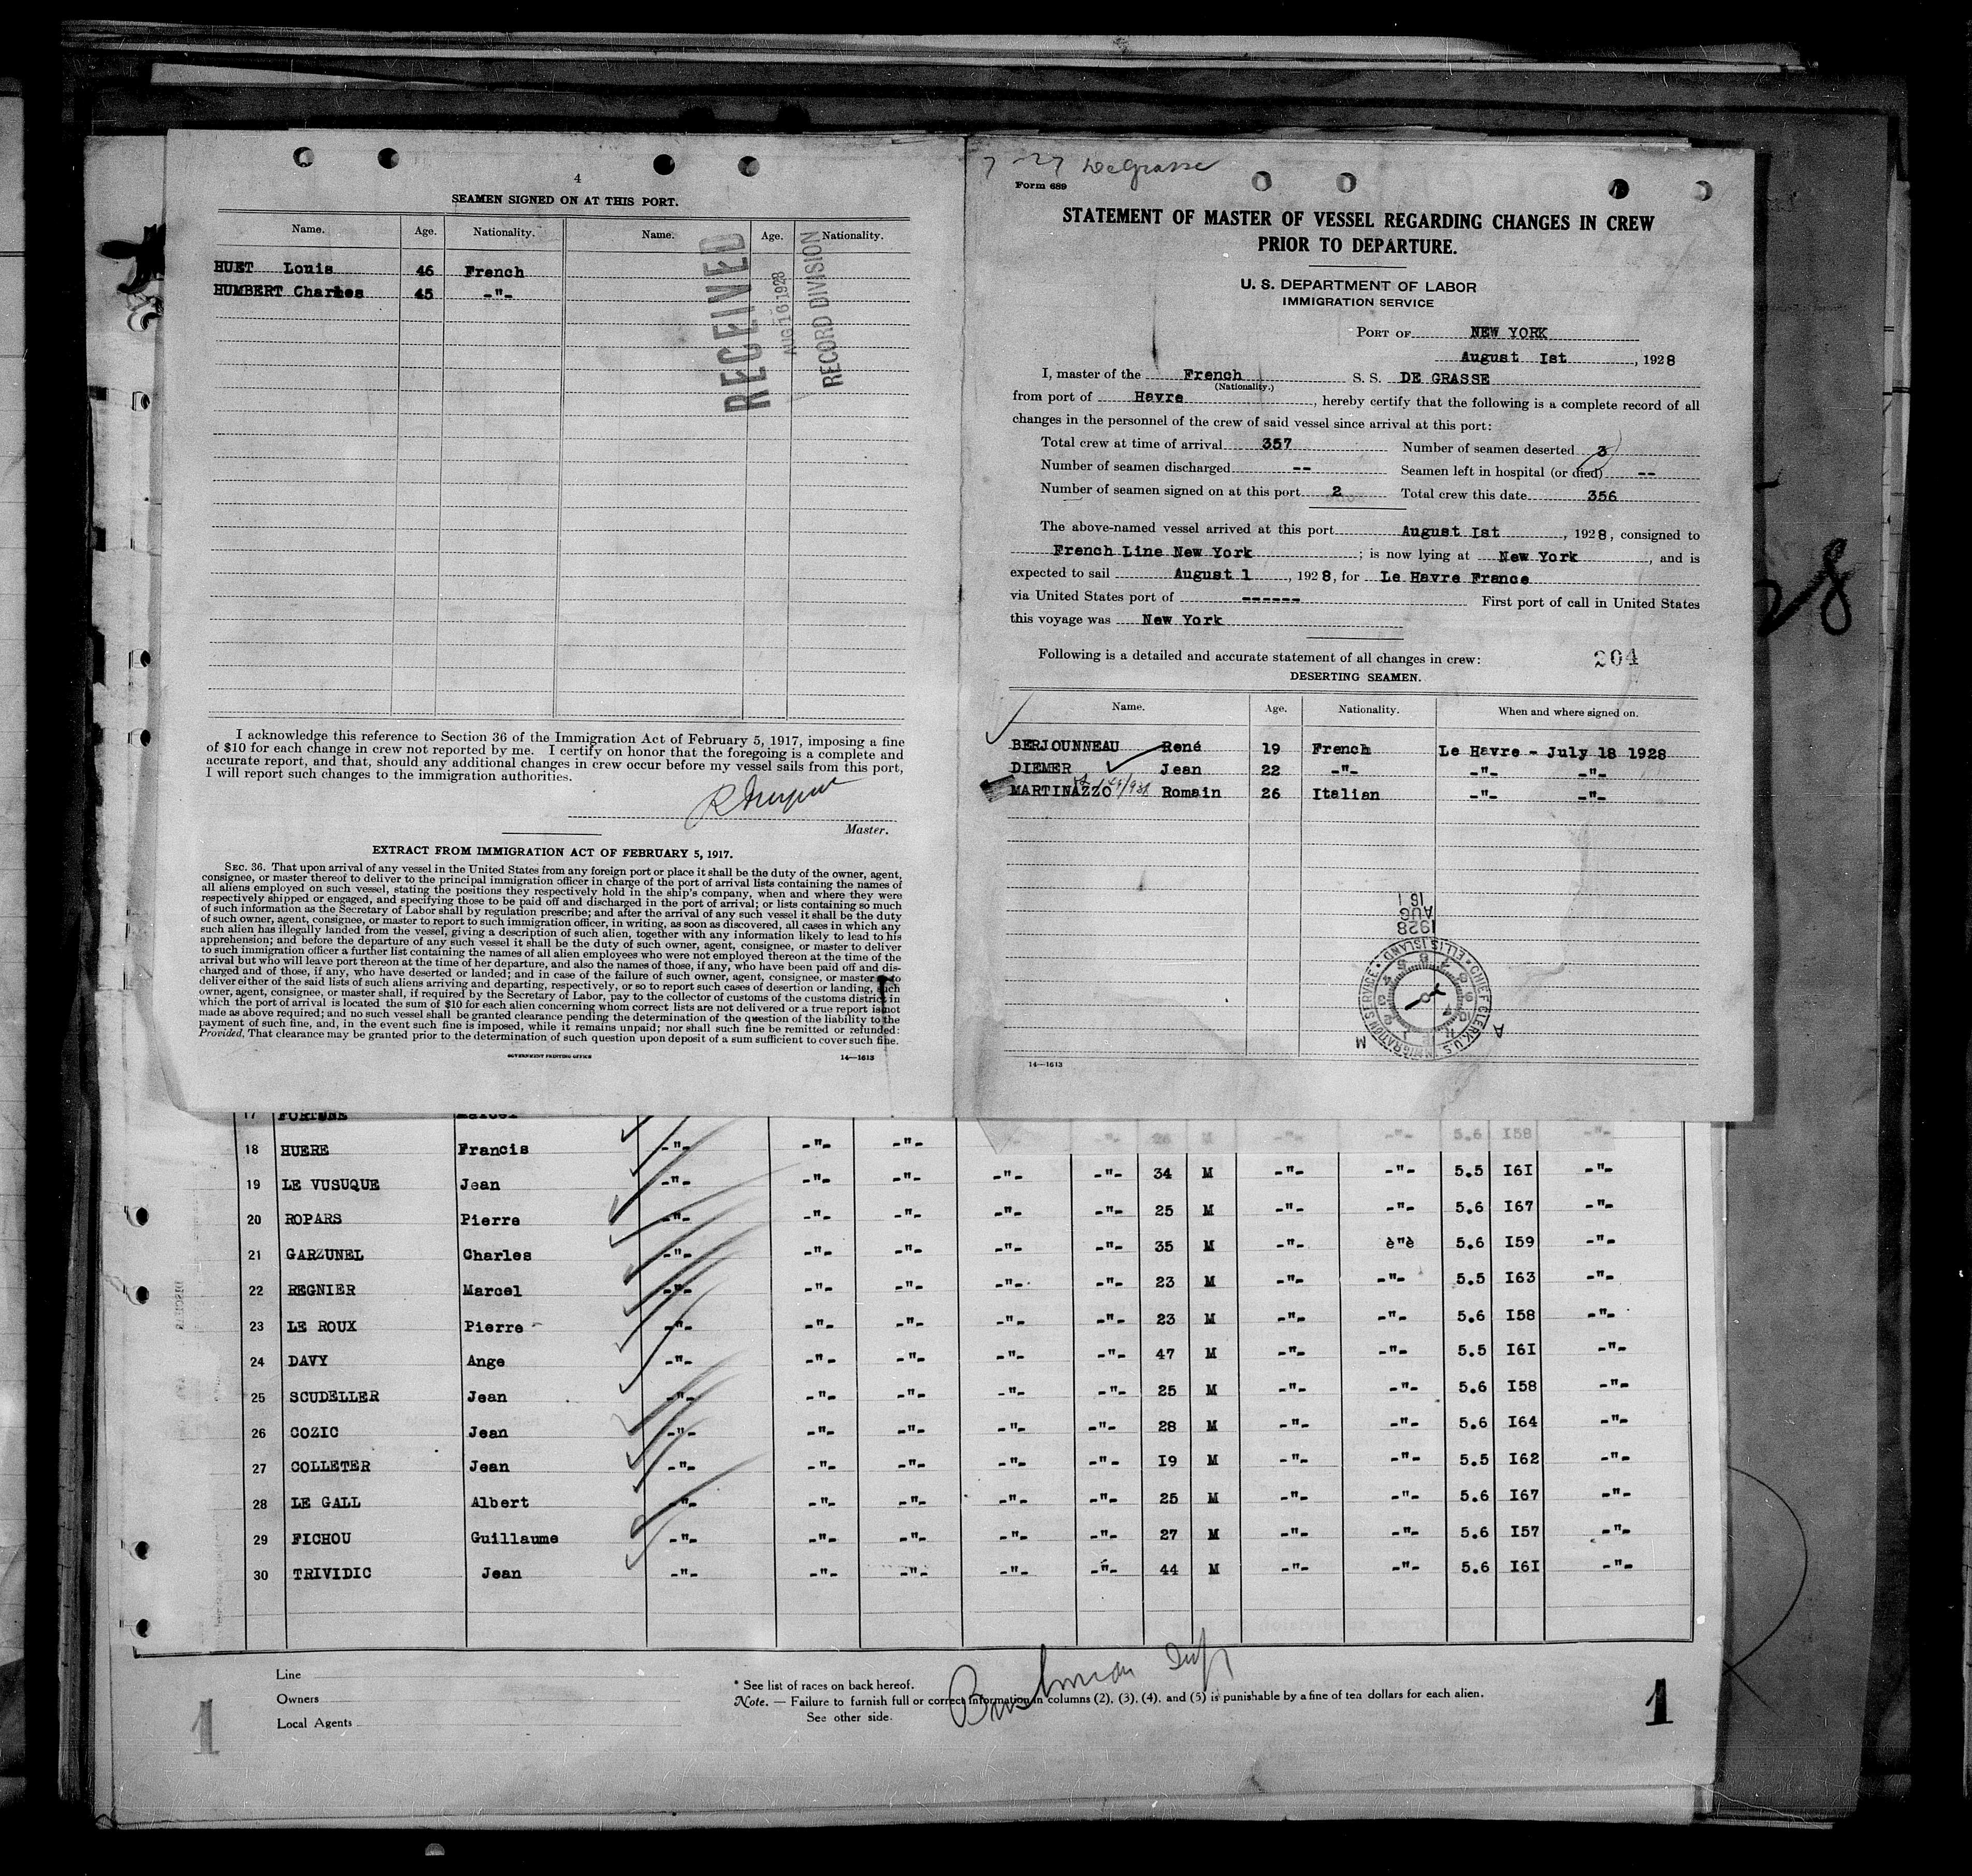 4
SEAMEN SIGNED ON AT THIS PORT.
Name. Age. Nationality. Name. Age. Nationality.
HUET Louis 46 French
HUMBERT Charles 45 -"-
RECEIVED
AUG 16 1928
RECORD DIVISION
I acknowledge this reference to Section 36 of the Immigration Act of February 5, 1917, imposing a fine
of $10 for each change in crew not reported by me. I certify on honor that the foregoing is a complete and
accurate report, and that, should any additional changes in crew occur before my vessel sails from this port,
I will report such changes to the immigration authorities.
Master.
EXTRACT FROM IMMIGRATION ACT OF FEBRUARY 5, 1917.
SEC. 36. That upon arrival of any vessel in the United States from any foreign port or place it shall be the duty of the owner, agent,
consignee, or master thereof to deliver to the principal immigration officer in charge of the port of arrival lists containing the names of
all aliens employed on such vessel, stating the positions they respectively hold in the ship's company, when and where they were
respectively shipped or engaged, and specifying those to be paid off and discharged in the port of arrival; or lists containing so much
of such information as the Secretary of Labor shall by regulation prescribe; and after the arrival of any such vessel it shall be the duty
of such owner, agent, consignee, or master to report to such immigration officer, in writing, as soon as discovered, all cases in which any
such alien has illegally landed from the vessel, giving a description of such alien, together with any information likely to lead to his
apprehension; and before the departure of any such vessel it shall be the duty of such owner, agent, consignee, or master to deliver
to such immigration officer a further list containing the names of all alien employees who were not employed thereon at the time of the
arrival but who will leave port thereon at the time of her departure, and also the names of those, if any, who have been paid off and dis-
charged and of those, if any, who have deserted or landed; and in case of the failure of such owner, agent, consignee, or master so to
deliver either of the said lists of such aliens arriving and departing, respectively, or so to report such cases of desertion or landing, such
owner, agent, consignee, or master shall, if required by the Secretary of Labor, pay to the collector of customs of the customs district in
which the port of arrival is located the sum of $10 for each alien concerning whom correct lists are not delivered or a true report is not
made as above required; and no such vessel shall be granted clearance pending the determination of the question of the liability to the
payment of such fine, and, in the event such fine is imposed, while it remains unpaid; nor shall such fine be remitted or refunded:
Provided, That clearance may be granted prior to the determination of such question upon deposit of a sum sufficient to cover such fine.
GOVERNMENT PRINTING OFFICE 14—1613
7-27 DeGrasse
Form 689
STATEMENT OF MASTER OF VESSEL REGARDING CHANGES IN CREW
PRIOR TO DEPARTURE.
U. S. DEPARTMENT OF LABOR
IMMIGRATION SERVICE
PORT OF NEW YORK
August Ist, 1928
I, master of the French S. S. DE GRASSE
(Nationality.)
from port of Havre, hereby certify that the following is a complete record of all
changes in the personnel of the crew of said vessel since arrival at this port:
Total crew at time of arrival 357 Number of seamen deserted 3
Number of seamen discharged -- Seamen left in hospital (or died) --
Number of seamen signed on at this port 2 Total crew this date 356
The above-named vessel arrived at this port August Ist, 1928, consigned to
French Line New York; is now lying at New York, and is
expected to sail August 1, 1928, for Le Havre France
via United States port of ------ First port of call in United States
this voyage was New York
Following is a detailed and accurate statement of all changes in crew: 204
DESERTING SEAMEN.
Name. Age. Nationality. When and where signed on.
BERJOUNNEAU René 19 French Le Havre - July 18 1928
DIEMER Jean 22 -"- -"- -"-
MARTINAZZO Romain 26 Italian -"- -"-
1928
AUG
16
CHIEF CLERK, U.S. IMMIGRATION SERVICE ELLIS ISLAND
14—1613
17 FORTUNE Marcel
18 HUERE Francis -"- -"- -"- -"- 26 M -"- -"- 5.6 I58 -"-
19 LE VUSUQUE Jean -"- -"- -"- -"- -"- 34 M -"- -"- 5.5 I6I -"-
20 ROPARS Pierre -"- -"- -"- -"- -"- 25 M -"- -"- 5.6 I67 -"-
21 GARZUNEL Charles -"- -"- -"- -"- -"- 35 M -"- è"è 5.6 I59 -"-
22 REGNIER Marcel -"- -"- -"- -"- -"- 23 M -"- -"- 5.5 I63 -"-
23 LE ROUX Pierre -"- -"- -"- -"- -"- 23 M -"- -"- 5.6 I58 -"-
24 DAVY Ange -"- -"- -"- -"- -"- 47 M -"- -"- 5.5 I6I -"-
25 SCUDELLER Jean -"- -"- -"- -"- -"- 25 M -"- -"- 5.6 I58 -"-
26 COZIC Jean -"- -"- -"- -"- -"- 28 M -"- -"- 5.6 I64 -"-
27 COLLETER Jean -"- -"- -"- -"- -"- I9 M -"- -"- 5.5 I62 -"-
28 LE GALL Albert -"- -"- -"- -"- -"- 25 M -"- -"- 5.6 I67 -"-
29 FICHOU Guillaume -"- -"- -"- -"- -"- 27 M -"- -"- 5.6 I57 -"-
30 TRIVIDIC Jean -"- -"- -"- -"- -"- 44 M -"- -"- 5.6 I6I -"-
Line
Owners
Local Agents
* See list of races on back hereof.
Note. — Failure to furnish full or correct information in columns (2), (3), (4), and (5) is punishable by a fine of ten dollars for each alien.
See other side.
1
1